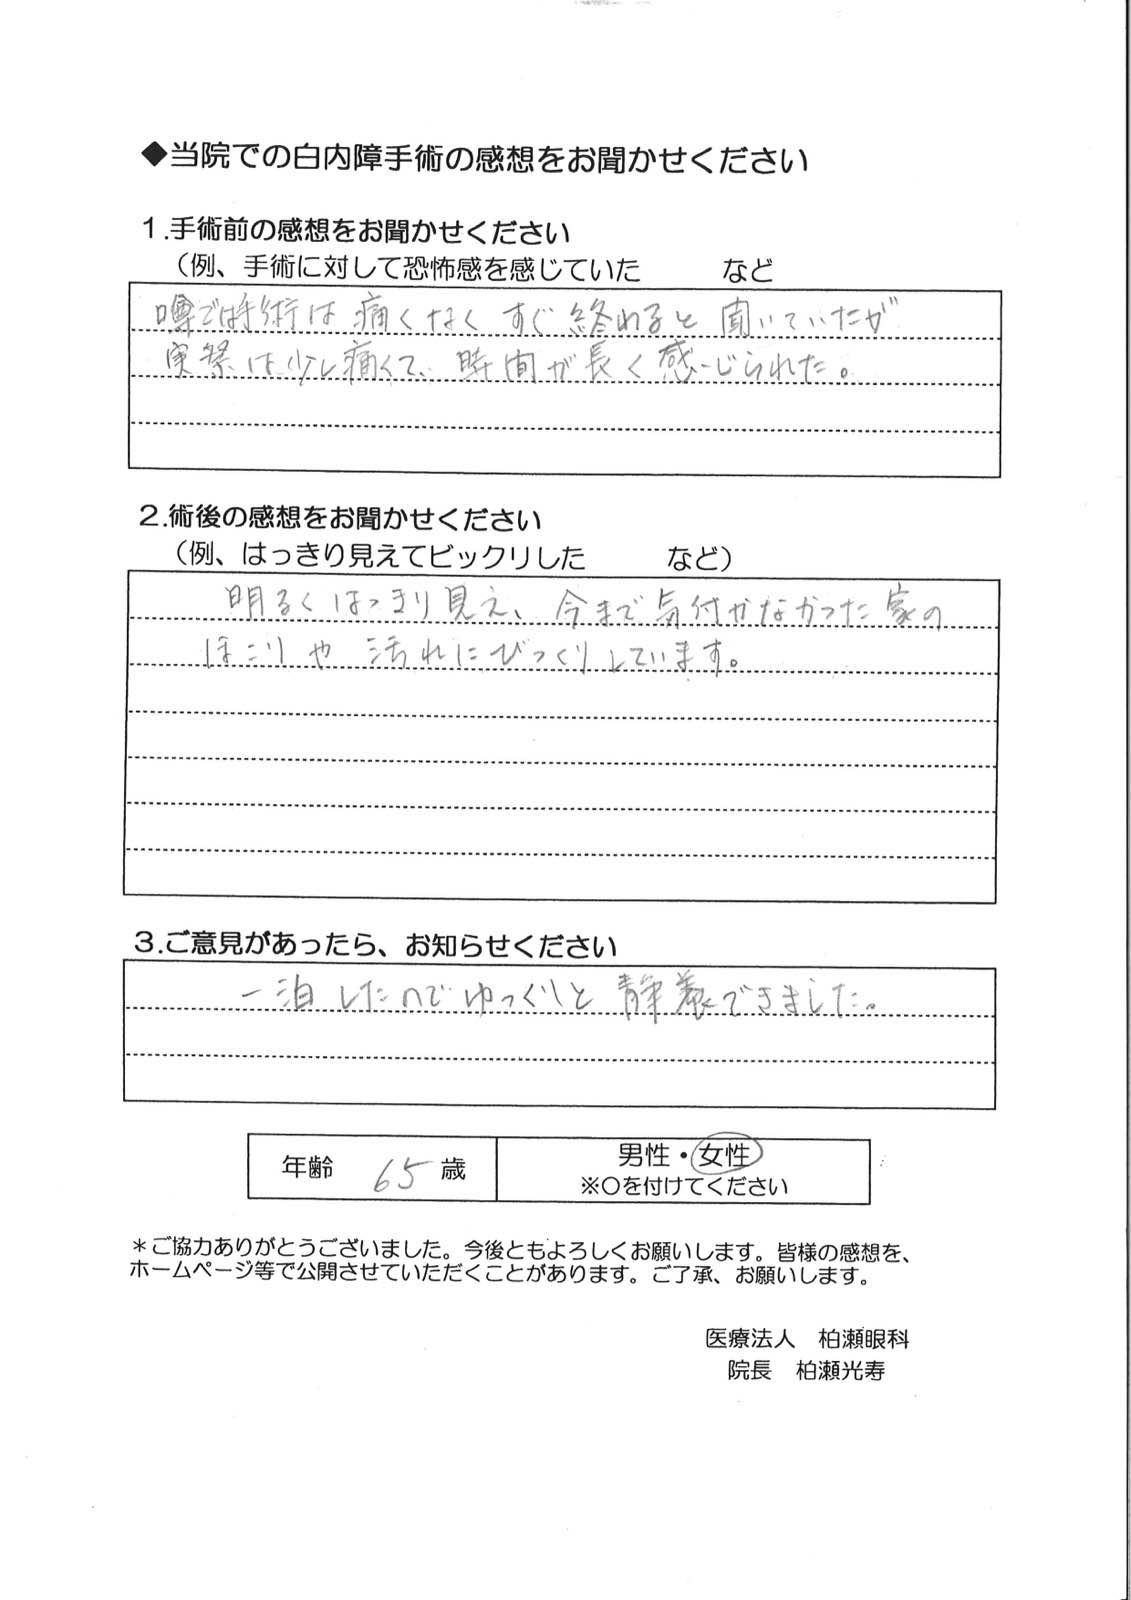 ◆当院での白内障手術の感想をお聞かせください
1.手術前の感想をお聞かせください
（例、手術に対して恐怖感を感じていた　　　など
噂では手術は痛くなくすぐ終わると聞いていたが
実際は少し痛くて、時間が長く感じられた。
2.術後の感想をお聞かせください
（例、はっきり見えてビックリした　　　など）
明るくはっきり見え、今まで気付かなかった家の
ほこりや汚れにびっくりしています。
3.ご意見があったら、お知らせください
一泊したのでゆっくりと静養できました。
年齢　65歳　男性・女性
※○を付けてください
＊ご協力ありがとうございました。今後ともよろしくお願いします。皆様の感想を、
ホームページ等で公開させていただくことがあります。ご了承、お願いします。
医療法人　柏瀬眼科
院長　柏瀬光寿